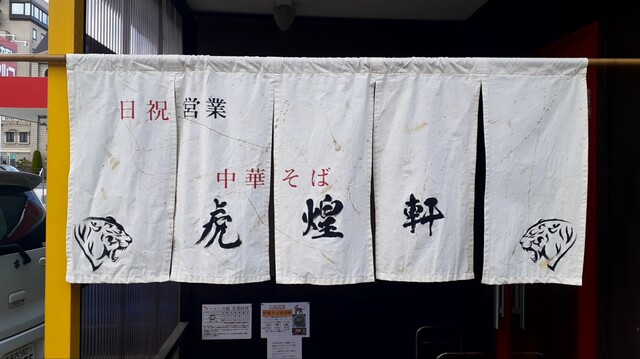 日祝営業
中華そば
虎煌軒